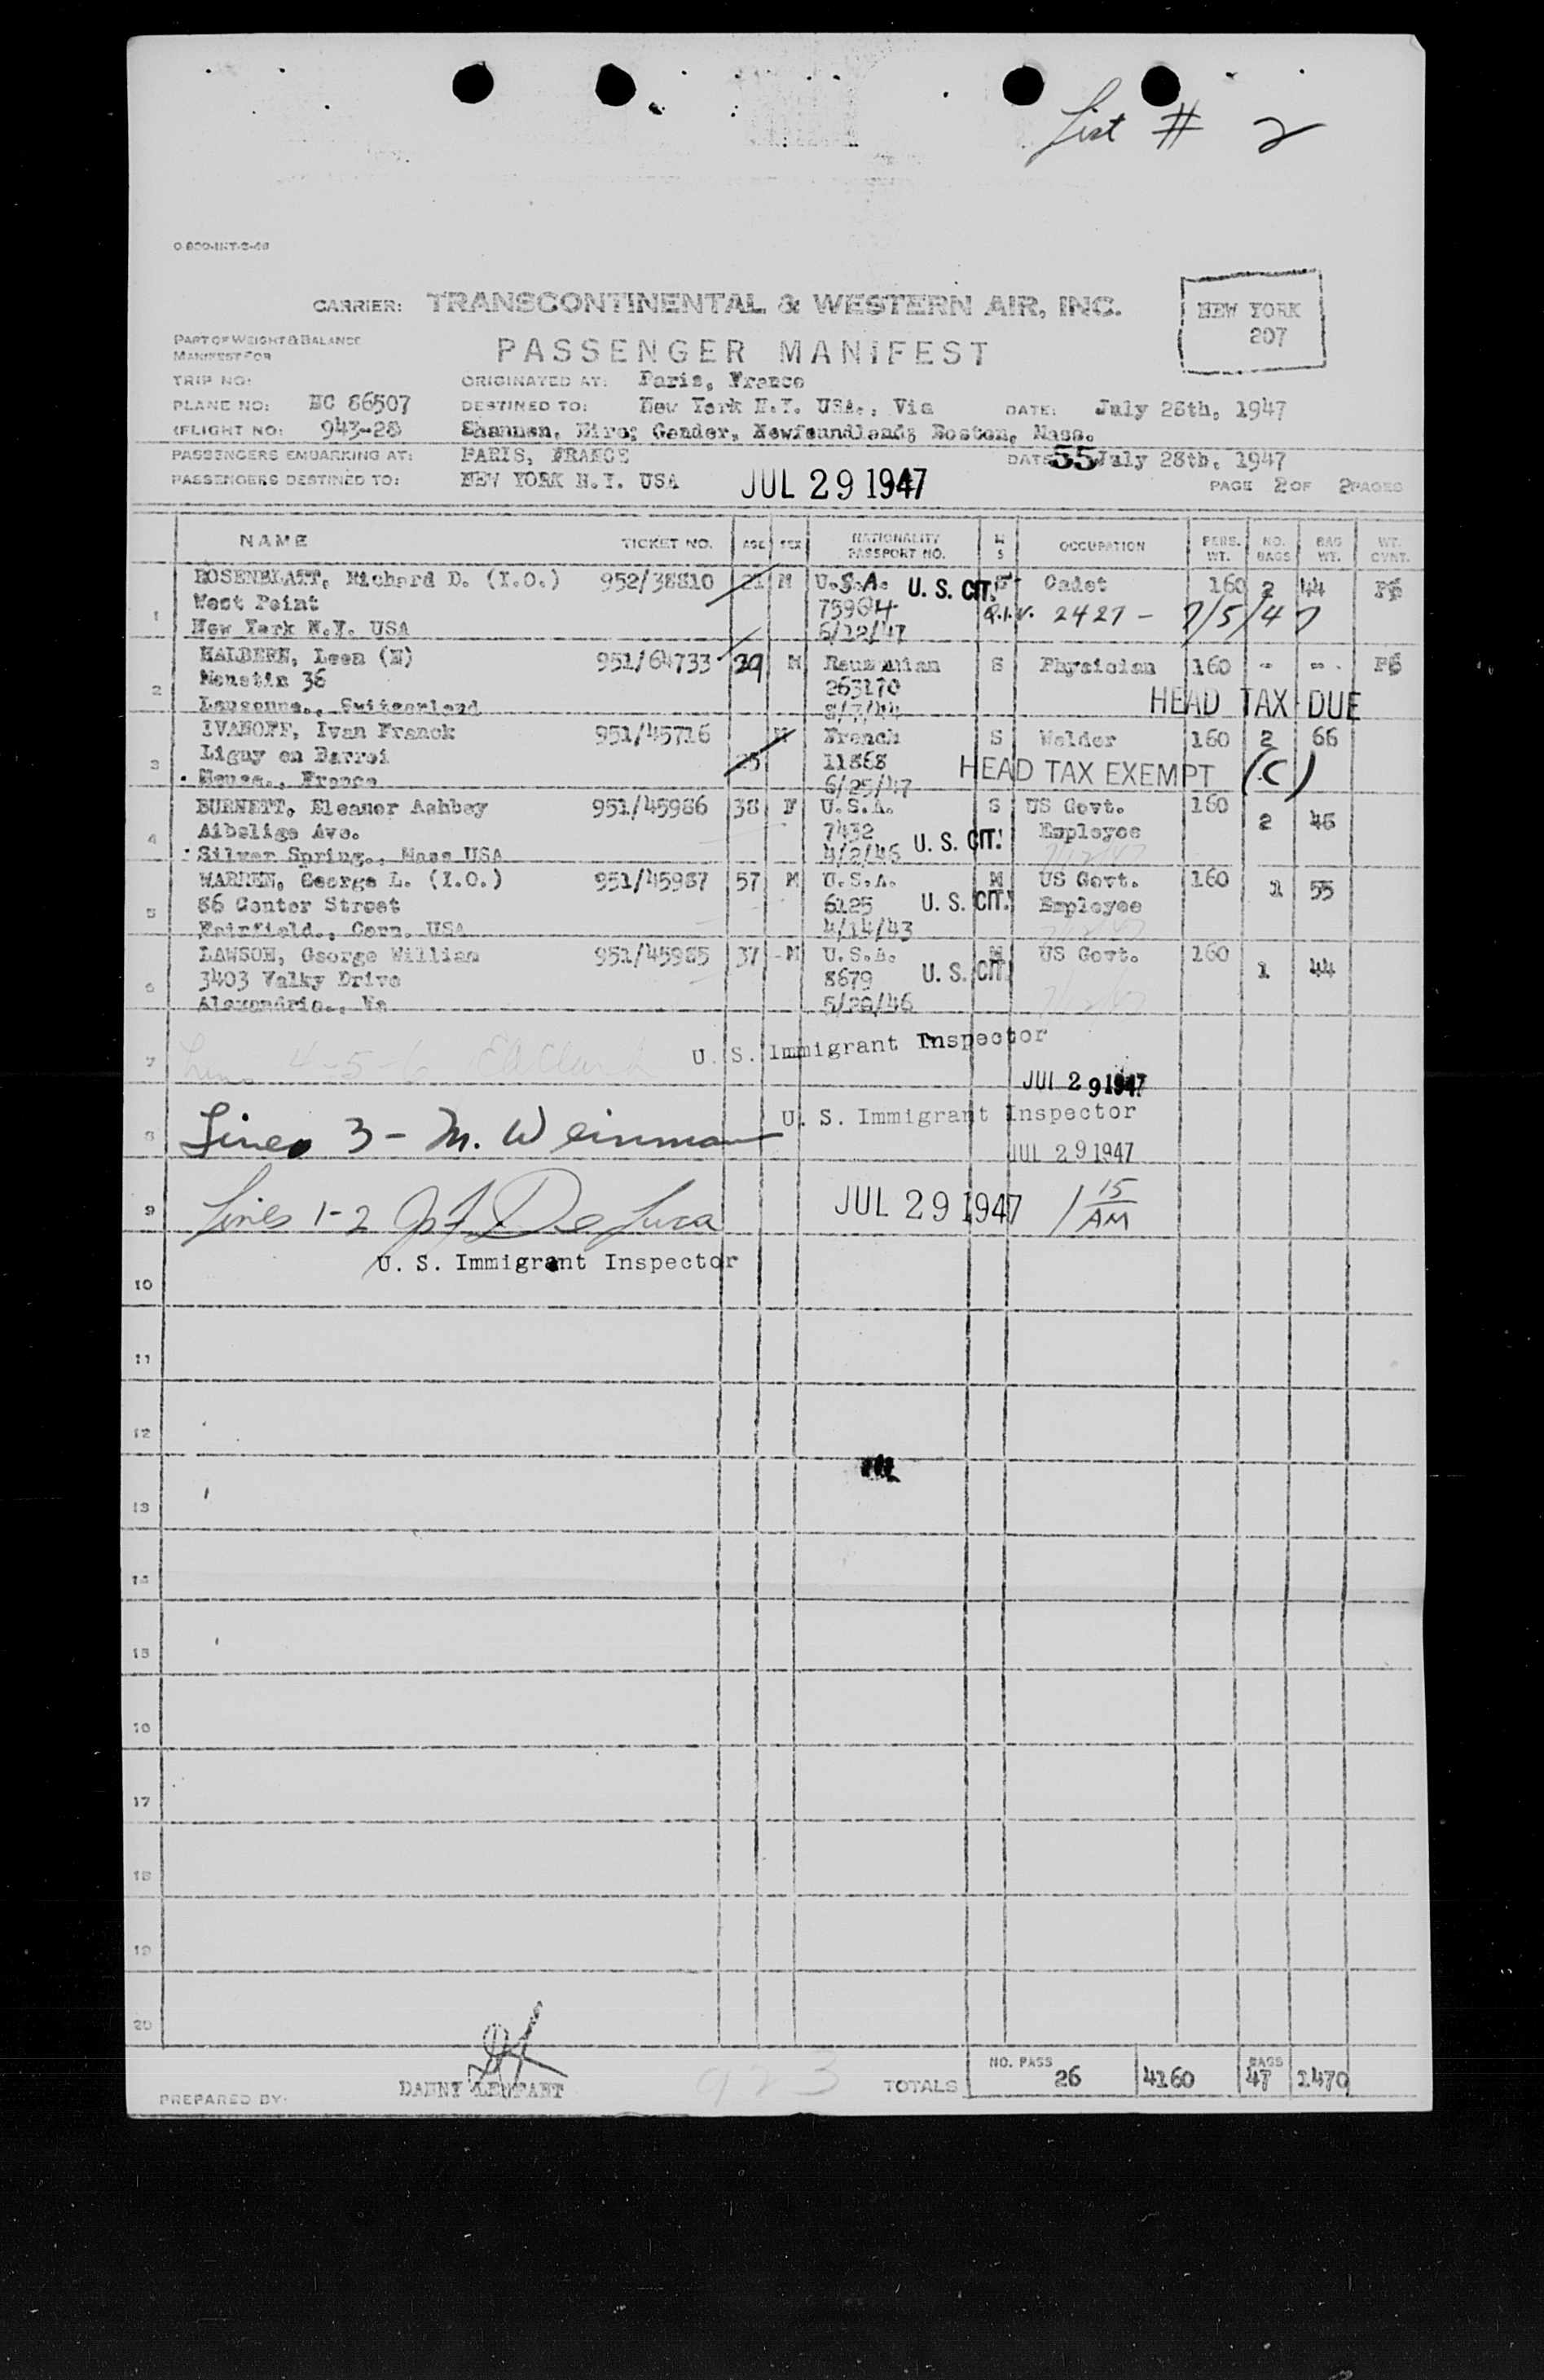 List # 2
CARRIER: TRANSCONTINENTAL & WESTERN AIR, INC.
NEW YORK
207
PART OF WEIGHT & BALANCE
MANIFEST FOR
PASSENGER MANIFEST
TRIP NO: ORIGINATED AT: Paris, France
PLANE NO: NC 86507 DESTINED TO: New York N.Y. USA., Via DATE: July 28th, 1947
FLIGHT NO: 943-28 Shannon, Eire; Gander, Newfoundland; Boston, Mass.
PASSENGERS EMBARKING AT: PARIS, FRANCE DATE 55 July 28th, 1947
PASSENGERS DESTINED TO: NEW YORK N.Y. USA JUL 29 1947 PAGE 2 OF 2 PAGES
NAME TICKET NO. AGE SEX NATIONALITY PASSPORT NO. M S OCCUPATION PERS. WT. NO. BAGS BAG WT. WT. CVNT.
ROSENBLATT, Richard D. (I.O.) 952/38810 21 M U.S.A. U. S. CIT. S Cadet 160 2 44
1 West Point 75904 2427 - 7/5/47
New York N.Y. USA 6/12/47
HALBERN, Leon (N) 951/64733 39 M Roumanian S Physician 160 - -
2 Monstin 36 263170 HEAD TAX DUE
Lausanne., Switzerland 8/7/44
IVANOFF, Ivan Franck 951/45716 M French S Welder 160 2 66
3 Ligny en Barroi 25 11868 HEAD TAX EXEMPT (C)
Meuse., France 6/25/47
BURNETT, Eleanor Ashbey 951/45986 38 F U.S.A. S US Govt. 160 2 46
4 Aibelige Ave. 7432 U. S. CIT. Employee
Silver Spring., Mass USA 4/2/46
WARREN, George L. (I.O.) 951/45987 57 M U.S.A. M US Govt. 160 1 55
5 86 Center Street 6125 U. S. CIT. Employee
Fairfield., Conn. USA 4/14/43
LAWSON, George William 951/45985 37 M U.S.A. M US Govt. 160 1 44
6 3403 Valky Drive 8679 U. S. CIT
Alexandria., Va 5/28/46
7 Lines 4-5-6 U. S. Immigrant Inspector
JUL 29 1947
8 Lines 3 - M. Weinman U. S. Immigrant Inspector
JUL 29 1947
9 Lines 1-2 De Luca JUL 29 1947 1 15 AM
U. S. Immigrant Inspector
10
11
12
13
14
15
16
17
18
19
20
PREPARED BY: DANNY LENFANT 923 TOTALS NO. PASS 26 4160 BAGS 47 1470